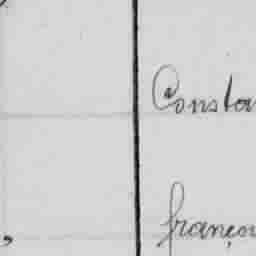 Consta
françai